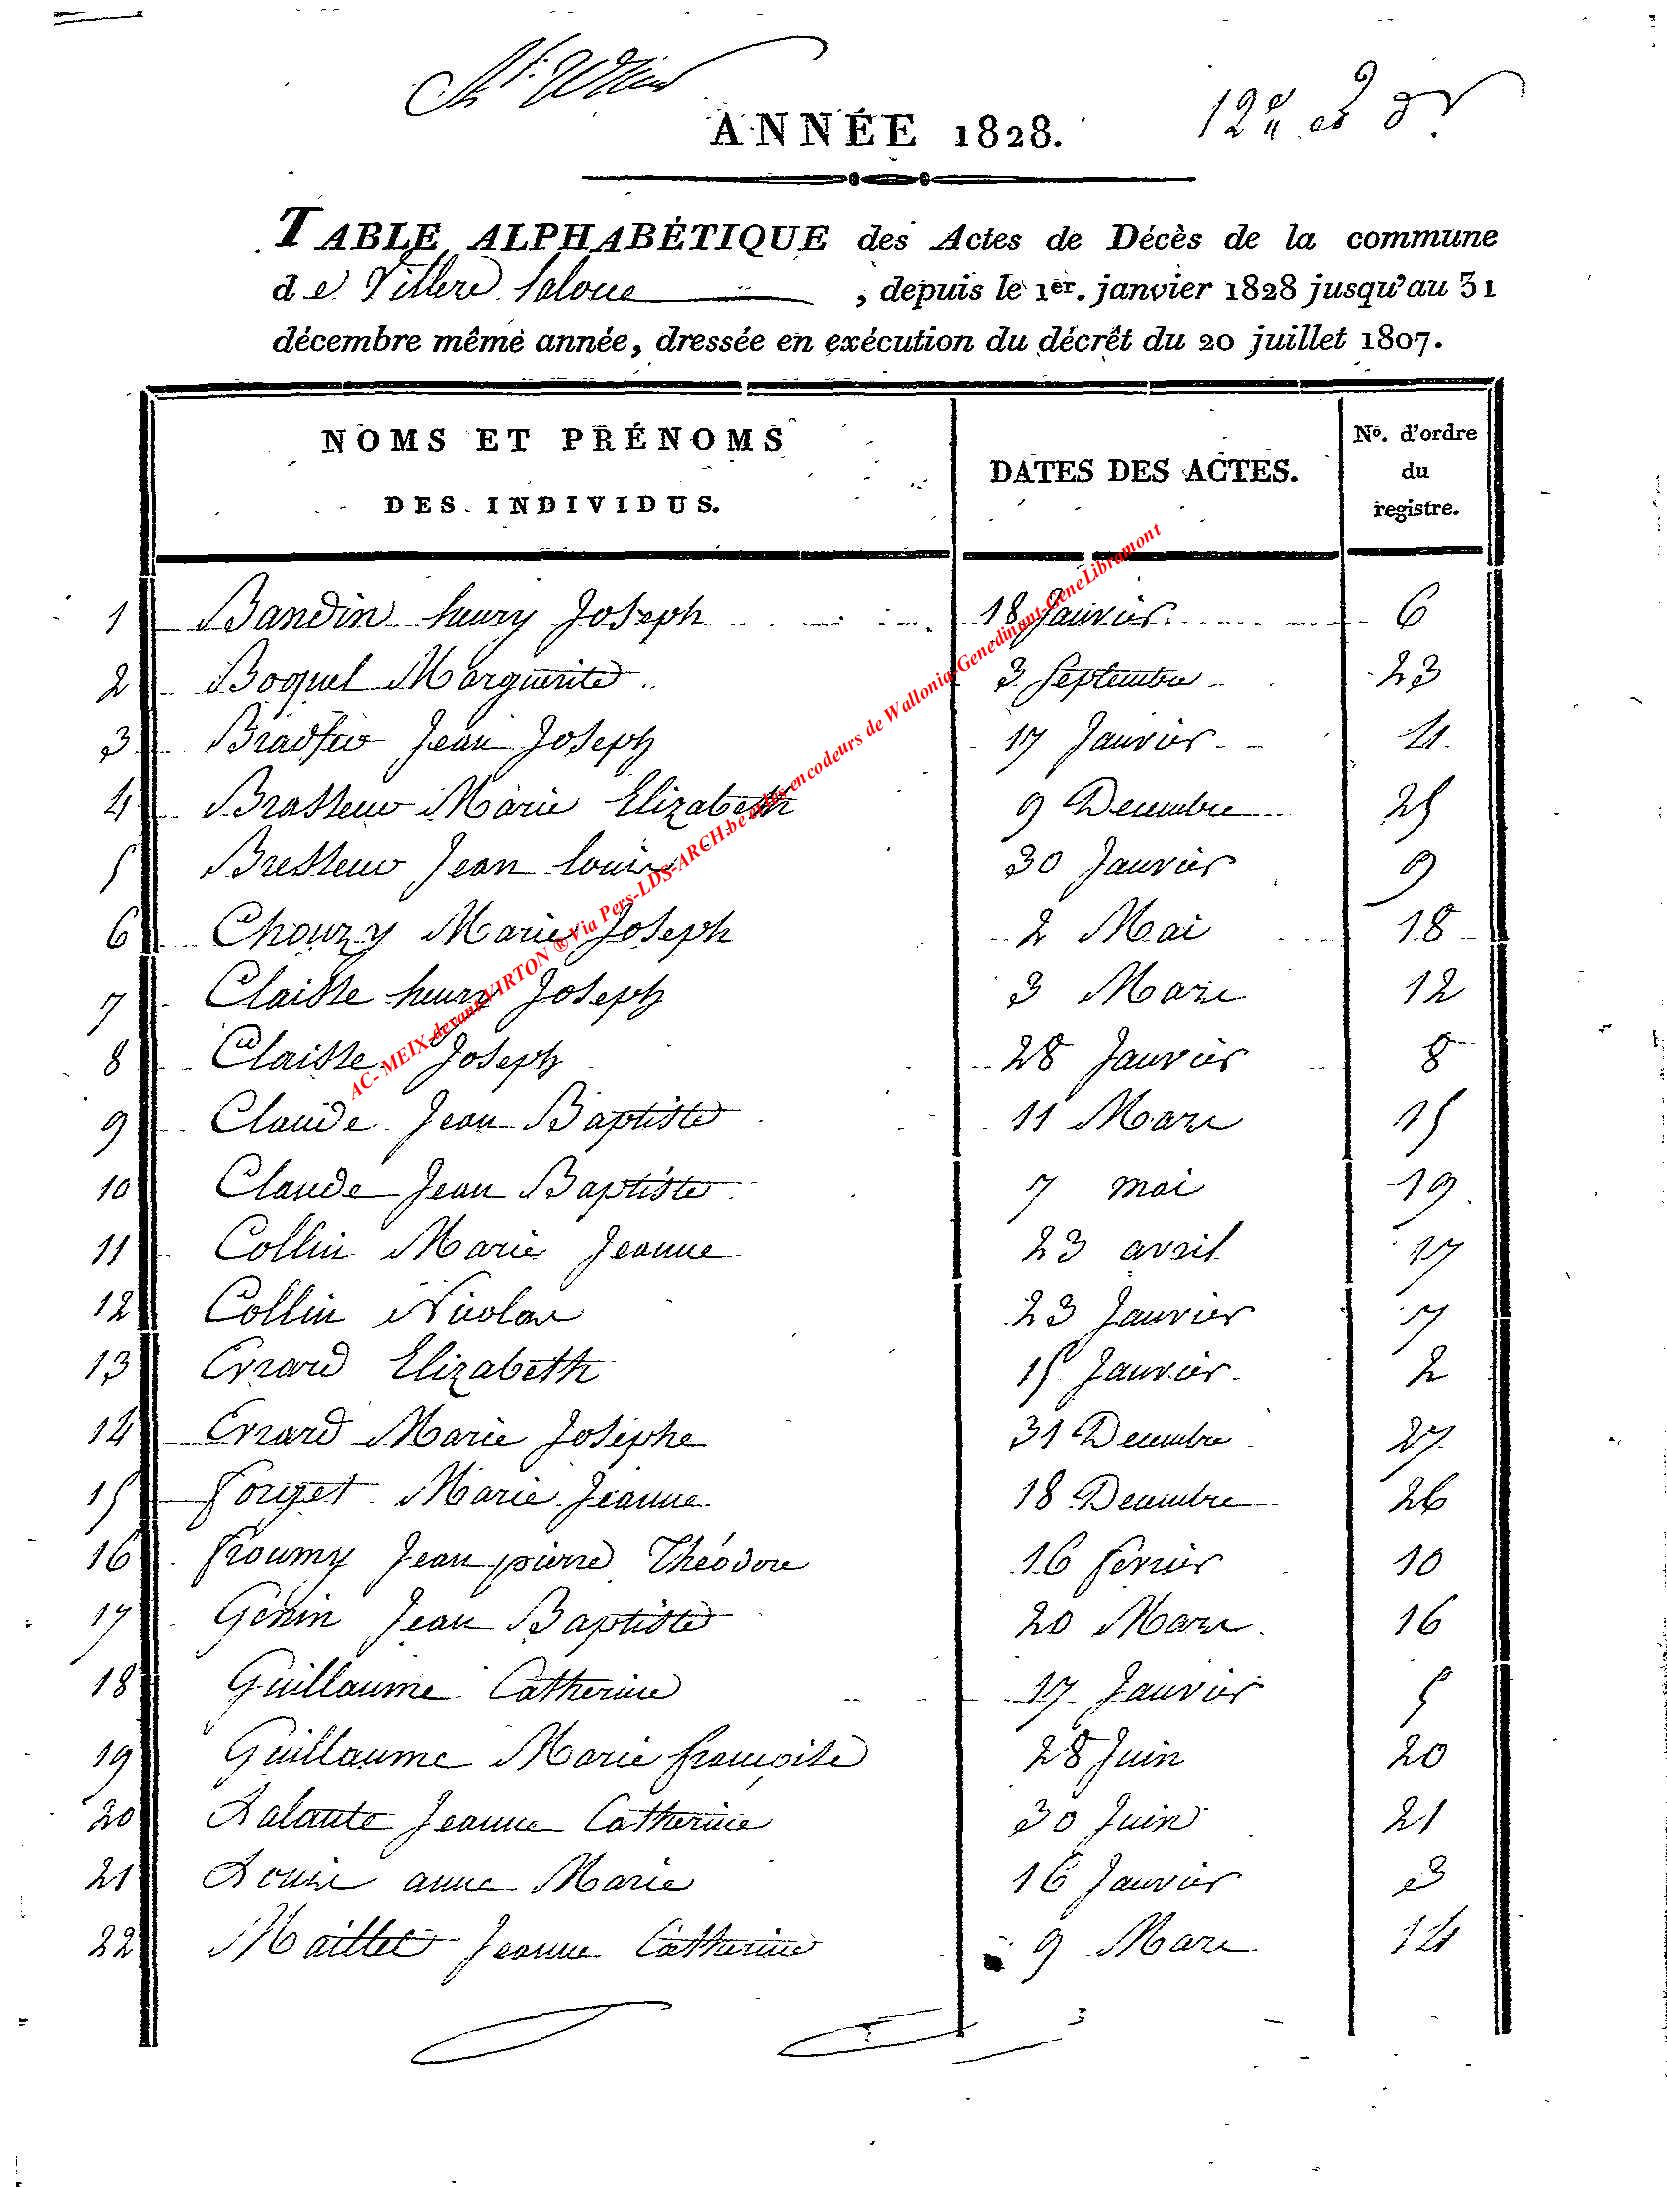 ANNÉE 1828.
TABLE ALPHABÉTIQUE des Actes de Décès de la commune
de Villers, depuis le 1er. janvier 1828 jusqu'au 31
décembre même année, dressée en exécution du décrêt du 20 juillet 1807.
NOMS ET PRÉNOMS DES INDIVIDUS. DATES DES ACTES. No. d'ordre du registre.
1 Bandin henry Joseph 18 Janvier 6
2 Boquel Marguerite 3 Septembre 23
3 Jean Joseph 17 Janvier 4
4 Brasseur Marie Elizabeth 9 Decembre 25
5 Bresseur Jean louis 30 Janvier 9
6 Chouzy Marie Joseph 2 Mai 18
7 Claisse henry Joseph 3 Mars 12
8 Claisse Joseph 28 Janvier 8
9 Claude Jean Baptiste 11 Mars 15
10 Claude Jean Baptiste 7 mai 19
11 Collin Marie Jeanne 23 avril 17
12 Collin Nicolas 23 Janvier 7
13 Errard Elizabeth 15 Janvier 2
14 Errard Marie Josephe 31 Decembre 27
15 Forget Marie Jeanne 18 Decembre 26
16 froumy Jean pierre Théodore 16 fevrier 10
17 Génin Jean Baptiste 20 Mars 16
18 Guillaume Catherine 17 Janvier 5
19 Guillaume Marie françoise 28 Juin 20
20 Lalante Jeanne Catherine 30 Juin 21
21 Louis anne Marie 16 Janvier 3
22 Maillet Jeanne Catherine 9 Mars 14
AC- MEIX-devant-VIRTON ® Via Pers-LDS-ARCH.be et les encodeurs de Wallonia-Genedinant-GeneLibramont